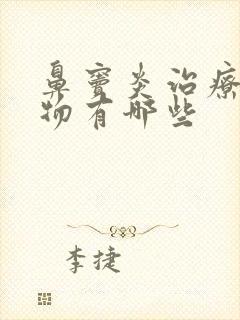 鼻窦炎治疗
物有哪些
李捷